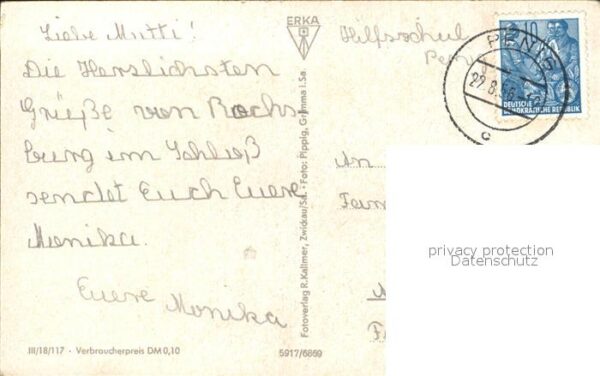 Liebe Mutti!
Die Herzlichsten
Grüße von Rochs-
burg im Schloß
sendet Euch Euere
Monika.
Euere Monika
III/18/117 · Verbraucherpreis DM 0,10
ERKA
Fotoverlag R. Kallmer, Zwickau/Sa. · Foto: Pippig, Grimma i. Sa.
5917/6869
Hilfsschul
Penig
PENIG
29.8.56
c
10
DEUTSCHE
DEMOKRATISCHE REPUBLIK
An
Fam
privacy protection
Datenschutz